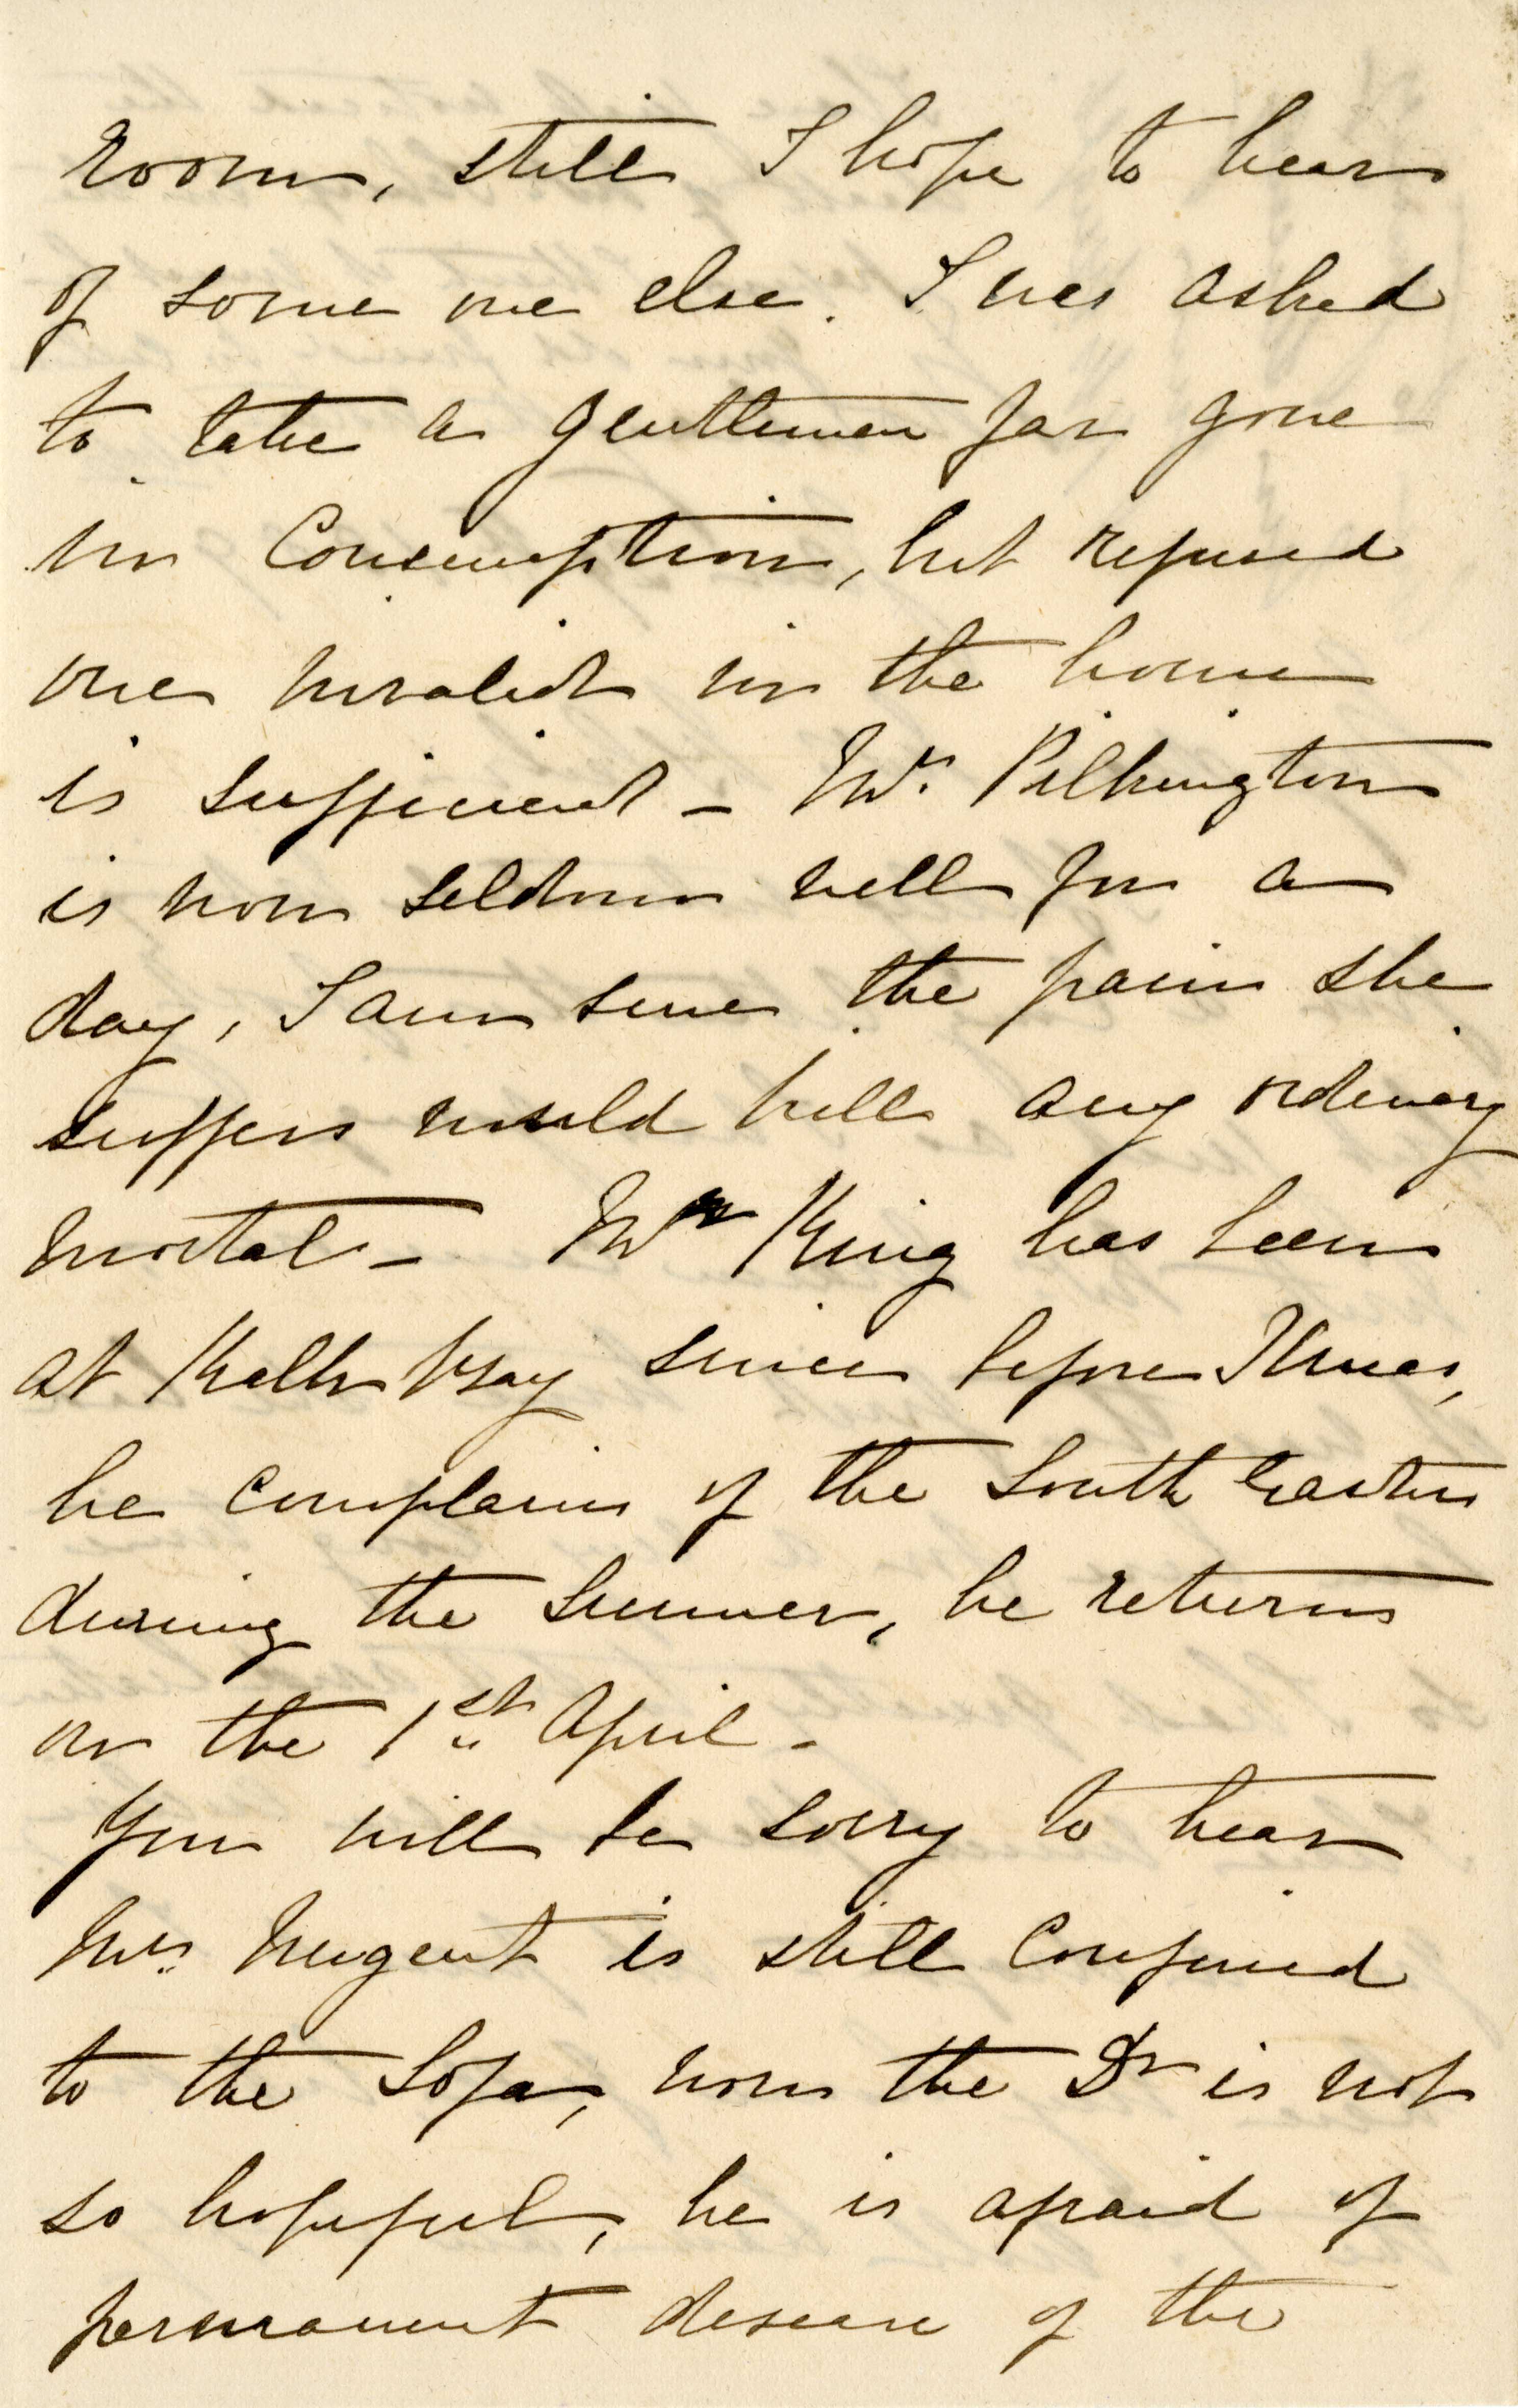 room, still I hope to hear
of some one else. I was asked
to take a gentleman far gone
in Consumption, but refused
one invalid in the house
is sufficient - Mrs. Pilkington
is now seldom well for a
day, I am sure the pain she
suffers would kill any ordinary
mortal - Mr King has been
at Kalk Bay since before Xmas,
he complains of the South Easters
during the Summer, he returns
on the 1st April -
You will be sorry to hear
Mrs. Nugent is still confined
to the Sofa, now the Dr is not
so hopeful, he is afraid of
permanent disease of the